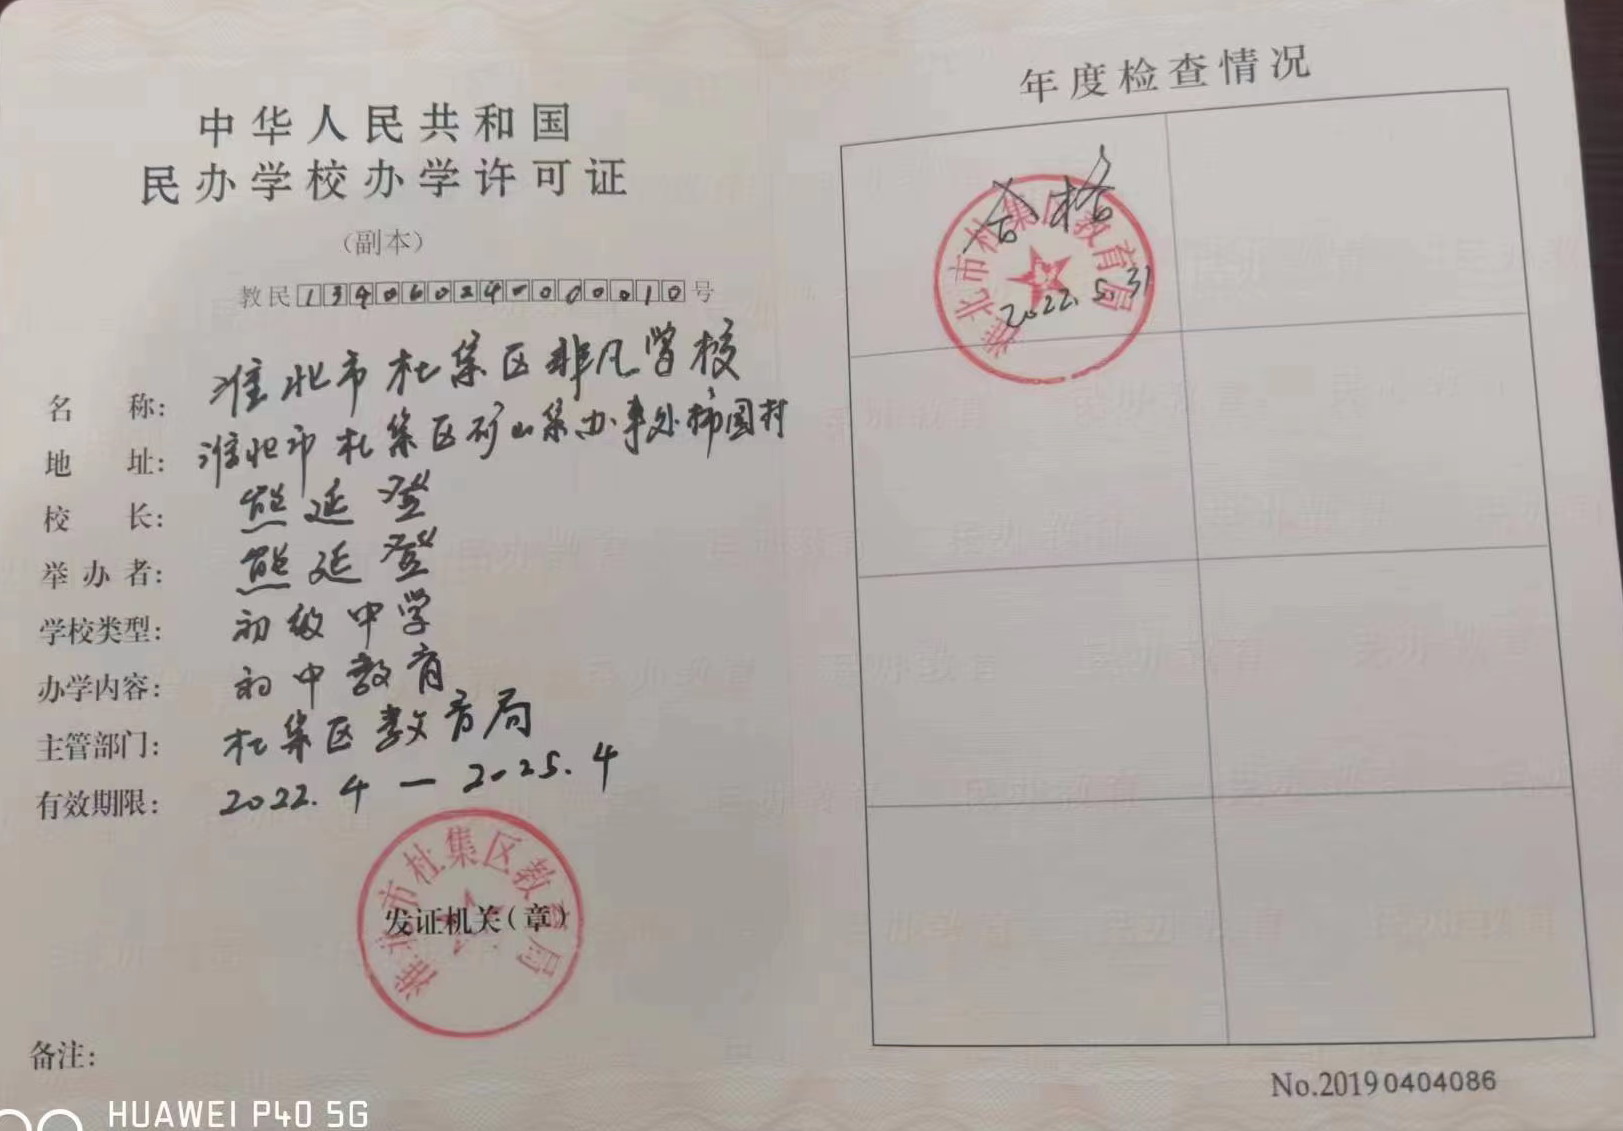 中华人民共和国
民办学校办学许可证
（副本）
教民134060240000010号
名 称: 淮北市杜集区非凡学校
地 址: 淮北市杜集区矿山集办事处柿园村
校 长: 熊延登
举办者: 熊延登
学校类型: 初级中学
办学内容: 初中教育
主管部门: 杜集区教育局
有效期限: 2022.4—2025.4
淮北市杜集区教育局
发证机关（章）
备注:
HUAWEI P40 5G
年度检查情况
合格
淮北市杜集区教育局
2022.5.31
No.20190404086